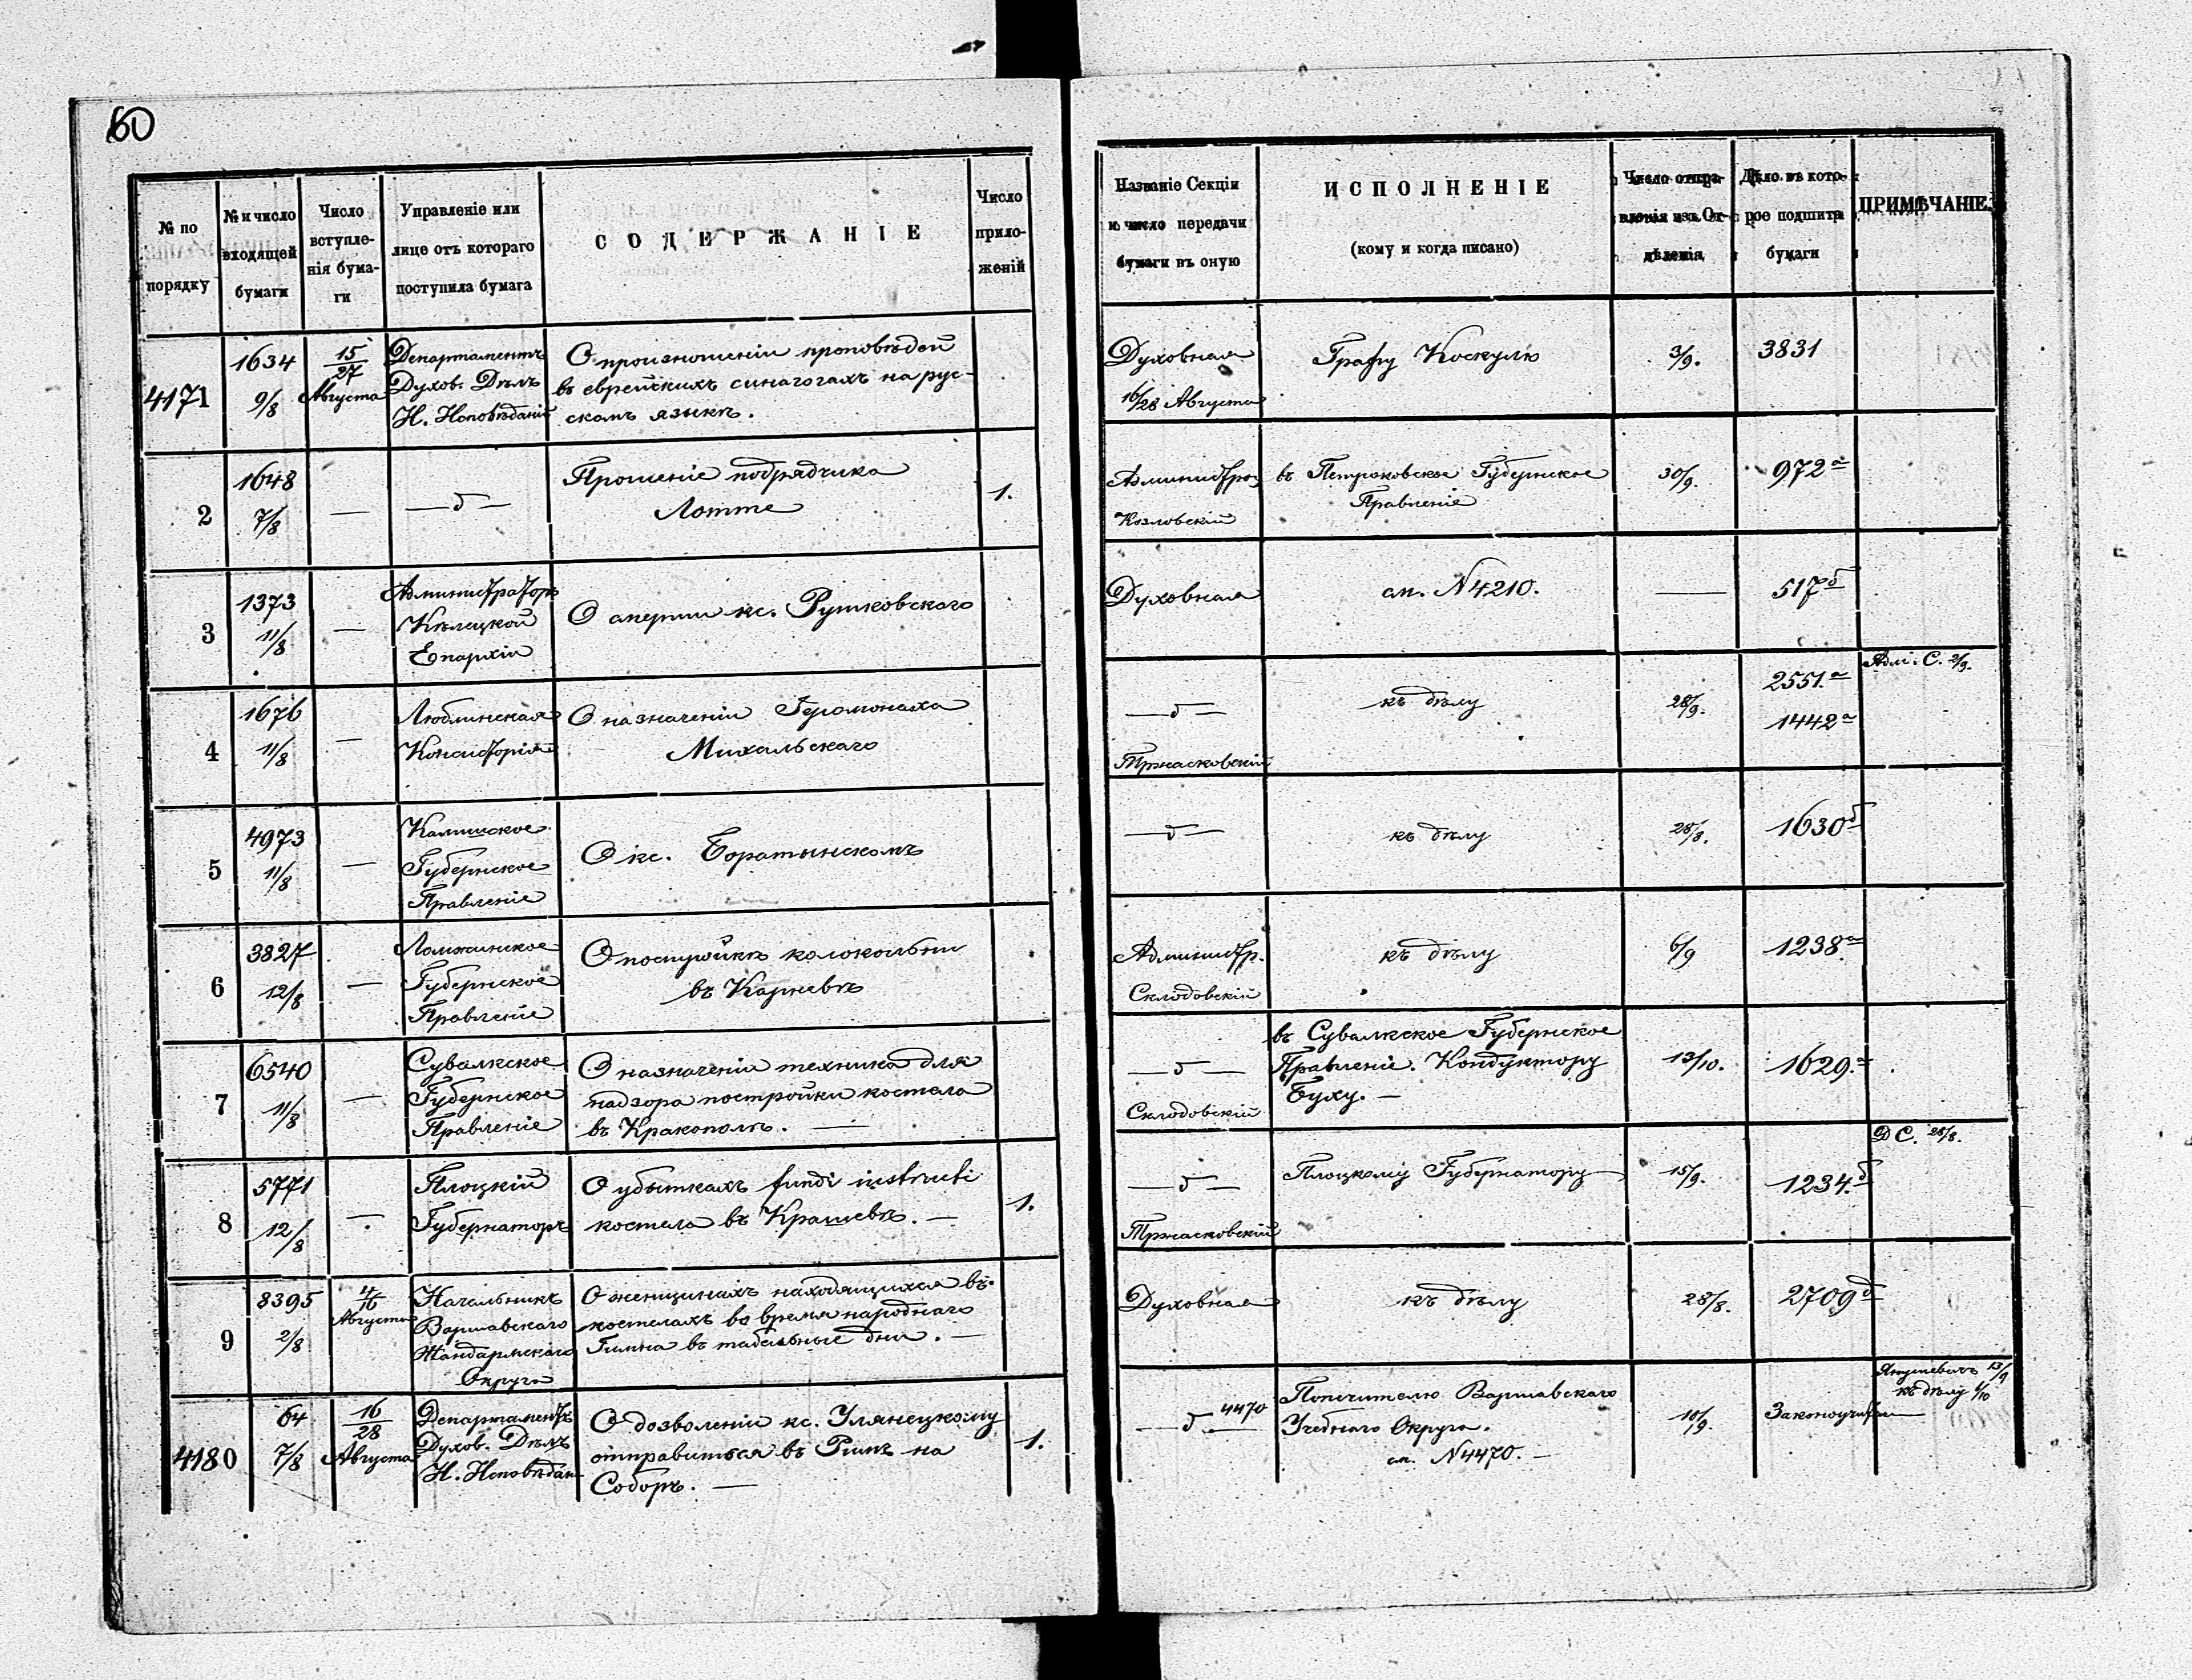 60
№ по порядку
№ и число входящей бумаги
Число вступле-
нія бума-
ги
Управленіе или
лице отъ котораго
поступила бумага
СОДЕРЖАНІЕ
Число
прило-
женій
Названіе Секціи
и число передачи
бумаги въ оную
ИСПОЛНЕНІЕ
(кому и когда писано)
Число отпра-
вленія изъ От-
дѣленія
Дѣло въ кото-
рое подшита
бумаги
ПРИМѢЧАНІЕ.
4171
1634
9/8
15/27
Августа
Департаментъ
Духов. Дѣлъ
И. Исповѣданій
О произношеніи проповѣдей
въ еврейскихъ синагогахъ на рус-
скомъ языкѣ.
Духовная
16/28 Августа
Графу Коскулю
3/9.
3831
2
1648
7/8
—
— б —
Прошеніе подрядчика
Лотте
1.
Администрац
Козловскій
въ Петроковское Губернское
Правленіе
30/9.
972 а
3
1373
11/8
—
Администраторъ
Кѣлецкой
Епархіи
О смерти кс. Рутковскаго
Духовная
см. N4210.
—
517 б
4
1676
11/8
—
Люблинская
Консисторія
О назначеніи Іеромонаха
Михальскаго
— б —
Тржасковскій
къ дѣлу
28/9.
2551. а
1442 а
Адм. С. 2/9.
5
4973
11/8
—
Калишское
Губернское
Правленіе
О кс. Боратынскомъ
— б —
къ дѣлу
28/8.
1630 б
6
3827
12/8
—
Ломжинское
Губернское
Правленіе
О постройкѣ колокольни
въ Карневѣ
Администр.
Склодовскій
къ дѣлу
6/9
1238. а
7
6540
11/8
—
Сувалкское
Губернское
Правленіе
О назначеніи техника для
надзора постройки костела
въ Кракополѣ. —
— б —
Склодовскій
въ Сувалкское Губернское
Правленіе. Кондуктору
Буху. —
13/10.
1629. а
8
5771
12/8
—
Плоцкій
Губернаторъ
О убыткахъ fundi instructi
костела въ Крашевѣ. —
1.
— б —
Тржасковскій
Плоцкому Губернатору
15/9.
1234. б
Д С. 28/8.
9
8395
2/8
4/16
Августа
Начальникъ
Варшавскаго
Жандармскаго
Округа
О женщинахъ находящихся въ
костелахъ во время народнаго
Гимна въ табельные дни. —
Духовная
къ дѣлу
28/8.
2709 д
4180
64
7/8
16/28
Августа
Департаментъ
Духов. Дѣлъ
И. Исповѣдан
О дозволеніи кс. Улянецкому
отправиться въ Римъ на
Соборъ. —
1.
— б —
4470
Попечителю Варшавскаго
Учебнаго Округа.
см. N4470. —
10/9.
Законоучители
Янушевичъ 13/9
къ дѣлу 6/10